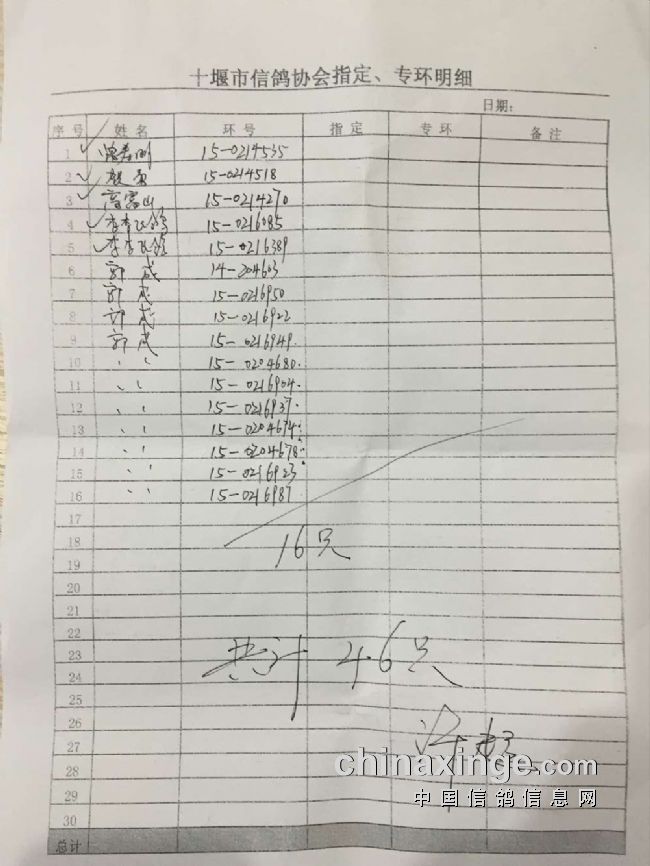 十堰市信鸽协会指定、专环明细
日期:
序号 姓名 环号 指定 专环 备注
1 15-0214535
2 15-0214518
3 高富山 15-0214270
4 15-0216085
5 15-0216389
6 郭成 14-204603
7 郭成 15-0216950
8 郭成 15-0216922
9 郭成 15-0216949.
10 、、 15-0204680.
11 、、 15-0216904.
12 、、 15-0216937.
13 、、 15-0204674.
14 、、 15-0204678.
15 、、 15-0216923
16 、、 15-0216987
17
18 16只
19
20
21
22
23 共计 46只
24
25
26
27
28
29
30
总计
chinaxinge.com
中国信鸽信息网